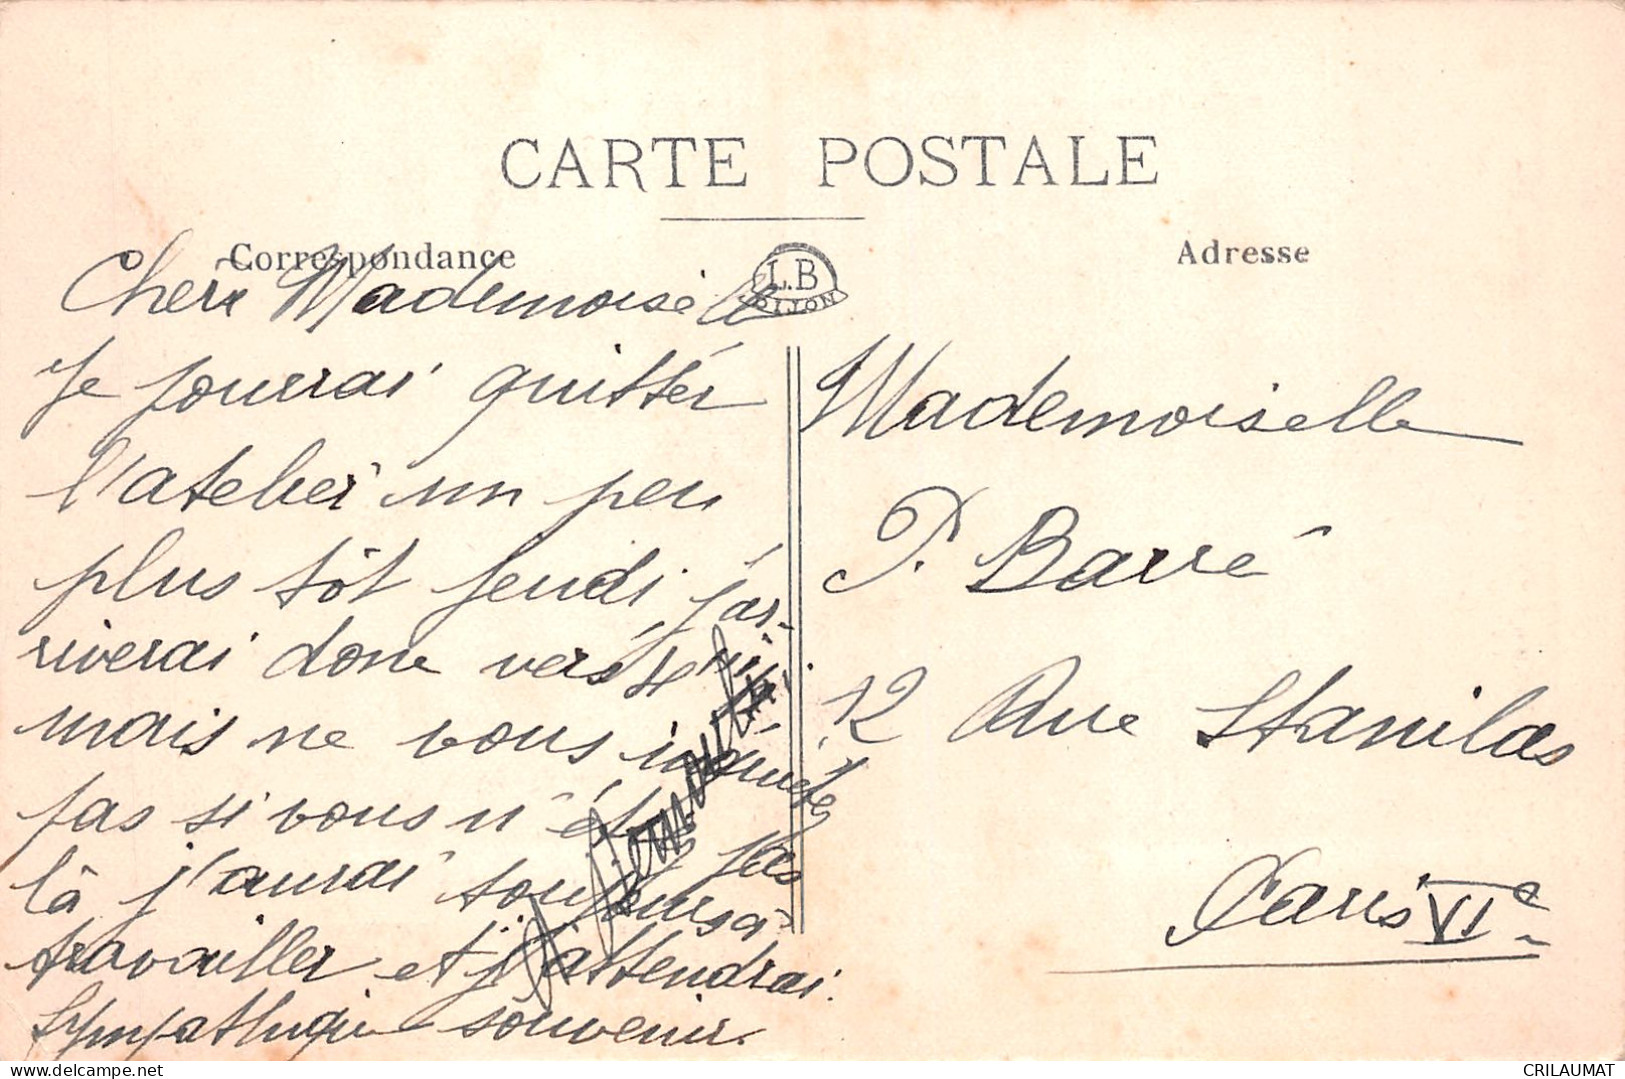 CARTE POSTALE
Correspondance
Adresse
L.B
DIJON
Chère Mademoiselle
Je pourrai quitter
l'atelier un peu
plus tôt jeudi j'ar-
riverai donc vers
mais ne vous inquiétez
pas si vous n'êtes pas
là j'aurai toujours à
travailler et j'attendrai.
Sympathique souvenir.
Mademoiselle
P. Barré
12 Rue Stanilas
Paris VIe
delcampe.net
CRILAUMAT